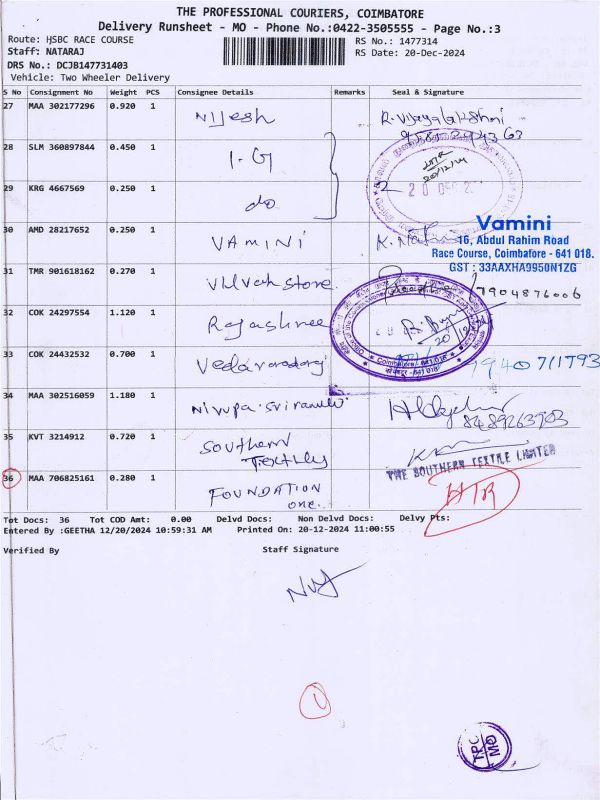 THE PROFESSIONAL COURIERS, COIMBATORE
Delivery Runsheet - MO - Phone No.:0422-3505555 - Page No.:3
Route: HSBC RACE COURSE
RS No.: 1477314
Staff: NATARAJ
RS Date: 20-Dec-2024
DRS No.: DCJB147731403
Vehicle: Two Wheeler Delivery
S No Consignment No Weight PCS Consignee Details Remarks Seal & Signature
27 MAA 302177296 0.920 1 Nijesh
28 SLM 360897844 0.450 1 I.G
20/12/24
29 KRG 4667569 0.250 1 do
30 AMD 28217652 0.250 1 VAMINI
Vamini
16, Abdul Rahim Road
Race Course, Coimbatore - 641 018.
GST : 33AAXHA9950N1ZG
31 TMR 901618162 0.270 1 store 7904876006
32 COK 24297554 1.120 1 Rajashree
33 COK 24432532 0.700 1
Coimbatore - 641 018
34 MAA 302516059 1.180 1 8489263903
35 KVT 3214912 0.720 1 Southern
THE SOUTHERN TEXTILE LIMITED
36 MAA 706825161 0.280 1 FOUNDATION
one.
HTR
Tot Docs: 36 Tot COD Amt: 0.00 Delvd Docs: Non Delvd Docs: Delvy Pts:
Entered By :GEETHA 12/20/2024 10:59:31 AM Printed On: 20-12-2024 11:00:55
Verified By Staff Signature
TPC
MO